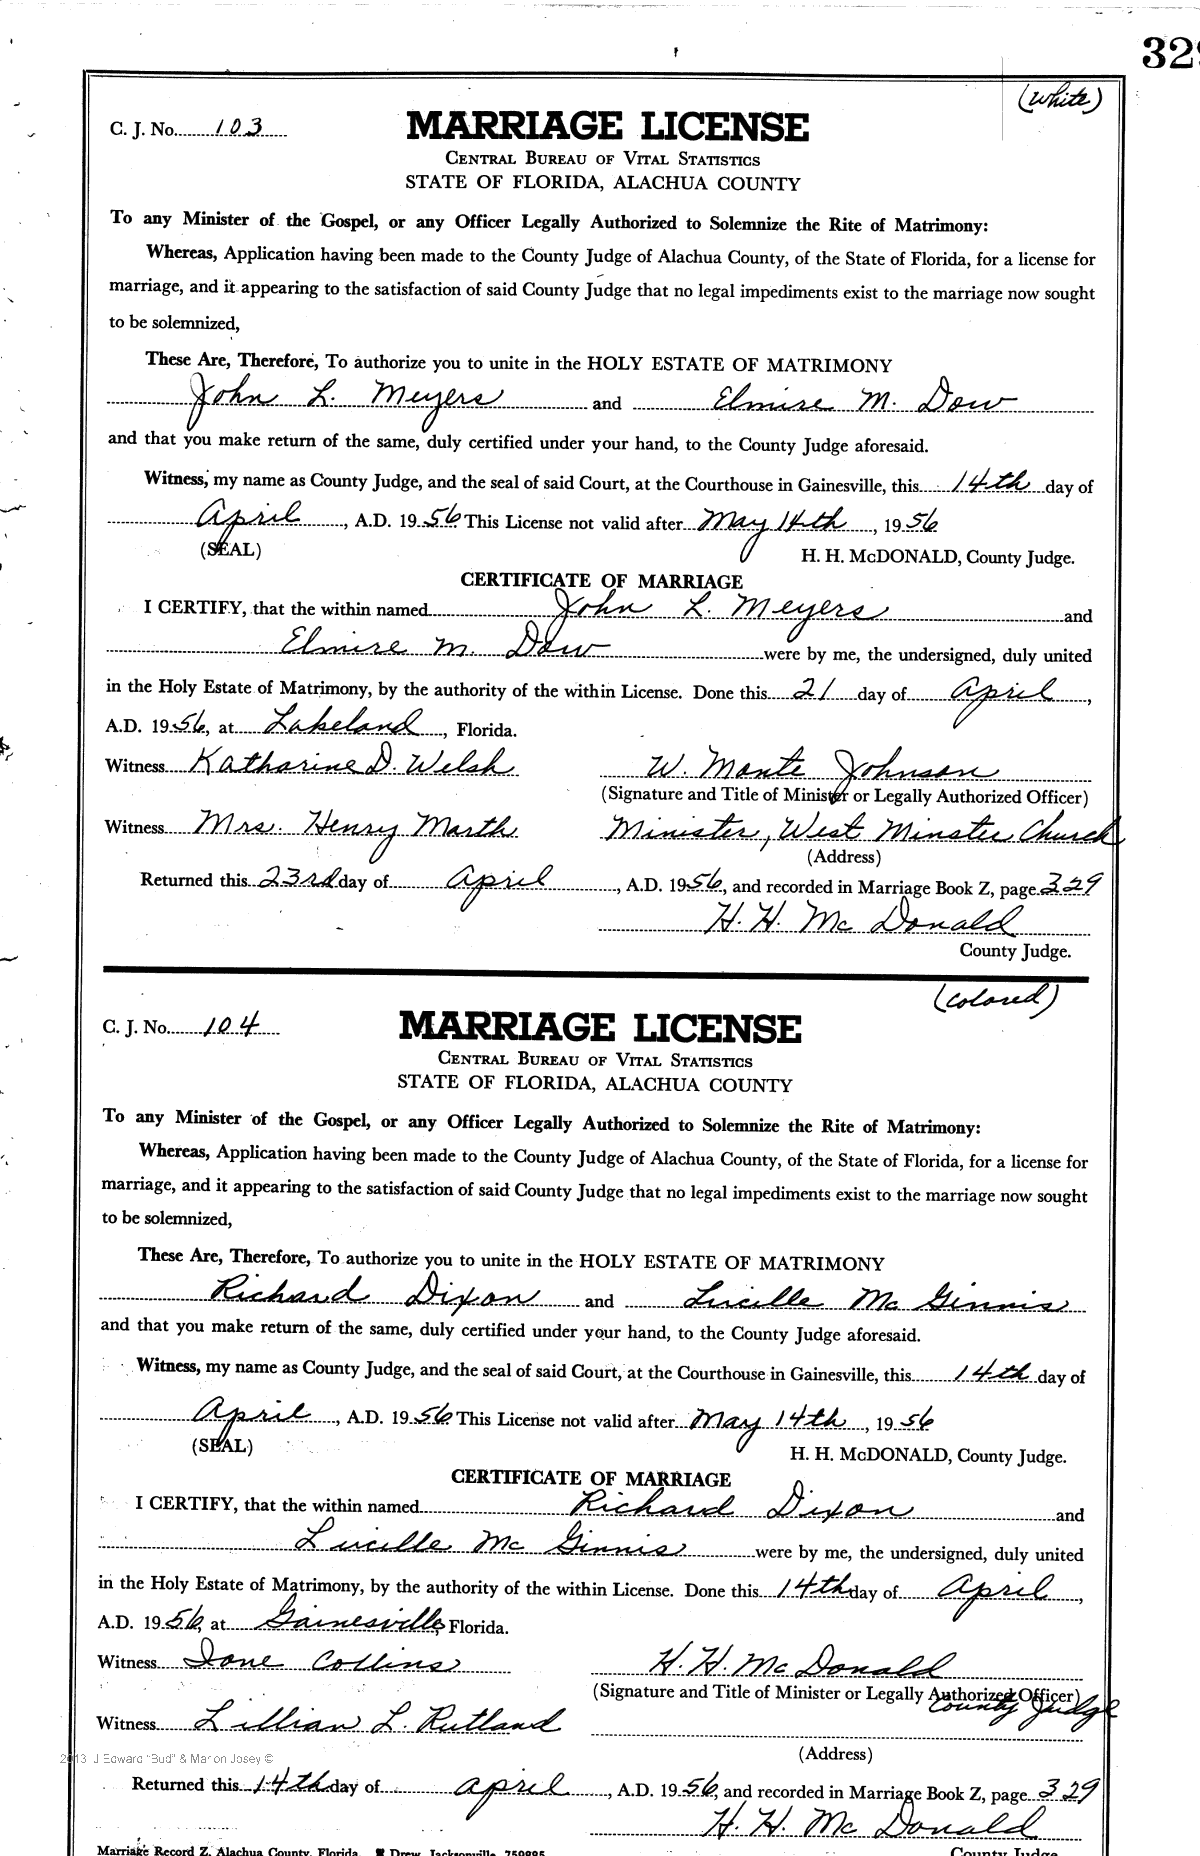 329
(white)
C. J. No. 103
MARRIAGE LICENSE
CENTRAL BUREAU OF VITAL STATISTICS
STATE OF FLORIDA, ALACHUA COUNTY
To any Minister of the Gospel, or any Officer Legally Authorized to Solemnize the Rite of Matrimony:
Whereas, Application having been made to the County Judge of Alachua County, of the State of Florida, for a license for
marriage, and it appearing to the satisfaction of said County Judge that no legal impediments exist to the marriage now sought
to be solemnized,
These Are, Therefore, To authorize you to unite in the HOLY ESTATE OF MATRIMONY
John L. Meyers and Elmire M. Dow
and that you make return of the same, duly certified under your hand, to the County Judge aforesaid.
Witness, my name as County Judge, and the seal of said Court, at the Courthouse in Gainesville, this 14th day of
April, A.D. 1956 This License not valid after May 14th, 1956
(SEAL) H. H. McDONALD, County Judge.
CERTIFICATE OF MARRIAGE
I CERTIFY, that the within named John L. Meyers and
Elmire M. Dow were by me, the undersigned, duly united
in the Holy Estate of Matrimony, by the authority of the within License. Done this 21 day of April,
A.D. 1956, at Lakeland, Florida.
Witness Katharine D. Welsh W. Monte Johnson
(Signature and Title of Minister or Legally Authorized Officer)
Witness Mrs. Henry Marth Minister, West Minster Church
(Address)
Returned this 23rd day of April, A.D. 1956, and recorded in Marriage Book Z, page 329
H. H. McDonald
County Judge.
(colored)
C. J. No. 104
MARRIAGE LICENSE
CENTRAL BUREAU OF VITAL STATISTICS
STATE OF FLORIDA, ALACHUA COUNTY
To any Minister of the Gospel, or any Officer Legally Authorized to Solemnize the Rite of Matrimony:
Whereas, Application having been made to the County Judge of Alachua County, of the State of Florida, for a license for
marriage, and it appearing to the satisfaction of said County Judge that no legal impediments exist to the marriage now sought
to be solemnized,
These Are, Therefore, To authorize you to unite in the HOLY ESTATE OF MATRIMONY
Richard Dixon and Lucille McGinnis
and that you make return of the same, duly certified under your hand, to the County Judge aforesaid.
Witness, my name as County Judge, and the seal of said Court, at the Courthouse in Gainesville, this 14th day of
April, A.D. 1956 This License not valid after May 14th, 1956
(SEAL) H. H. McDONALD, County Judge.
CERTIFICATE OF MARRIAGE
I CERTIFY, that the within named Richard Dixon and
Lucille McGinnis were by me, the undersigned, duly united
in the Holy Estate of Matrimony, by the authority of the within License. Done this 14th day of April,
A.D. 1956, at Gainesville, Florida.
Witness Ione Collins H. H. McDonald
(Signature and Title of Minister or Legally Authorized Officer)
County Judge
Witness Lillian L. Rutland
(Address)
2013 J Edward "Bud" & Marion Josey ©
Returned this 14th day of April, A.D. 1956, and recorded in Marriage Book Z, page 329
H. H. McDonald
County Judge.
Marriage Record Z, Alachua County, Florida. Drew, Jacksonville